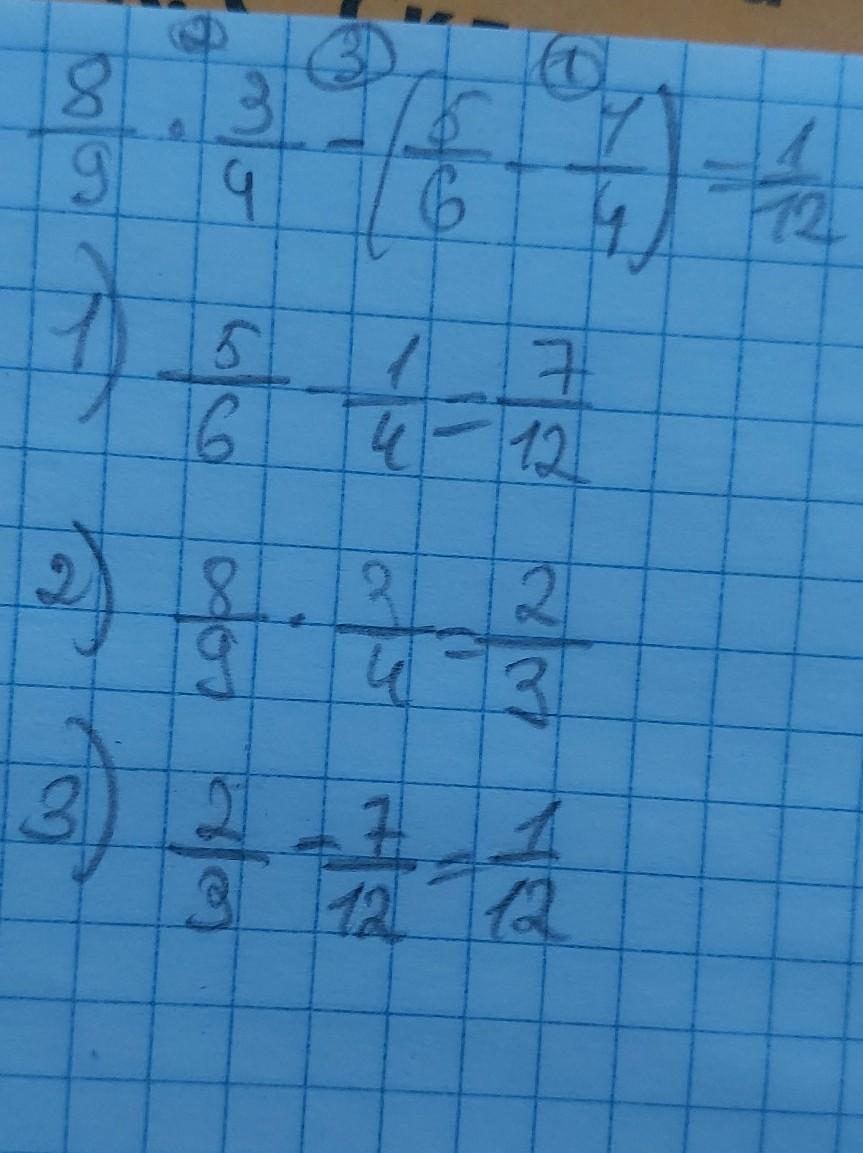 ② ③ ①
8/9 · 3/4 - (5/6 - 1/4) = 1/12
1) 5/6 - 1/4 = 7/12
2) 8/9 · 3/4 = 2/3
3) 2/3 - 7/12 = 1/12